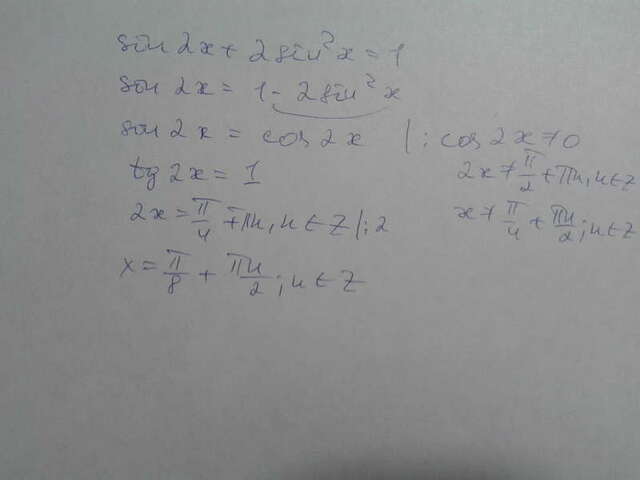 sin 2x + 2sin²x = 1
sin 2x = 1 - 2sin²x
sin 2x = cos 2x | : cos 2x ≠ 0
tg 2x = 1
2x ≠ π/2 + πn, n ∈ Z
2x = π/4 + πn, n ∈ Z | : 2
x ≠ π/4 + πn/2; n ∈ Z
x = π/8 + πn/2; n ∈ Z